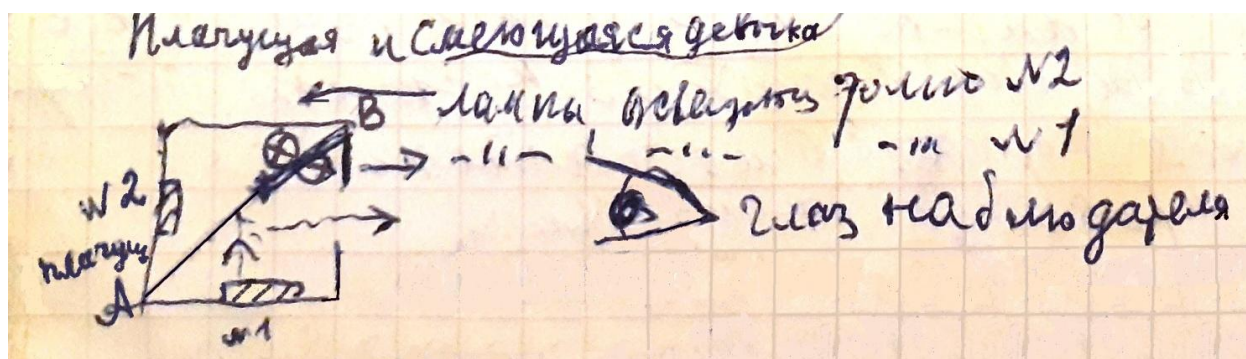 Плачущая и смеющаяся девочка
B лампы освещающ только N2
-"- -"- -"- N1
N2
плачущ
глаз наблюдателя
A
N1